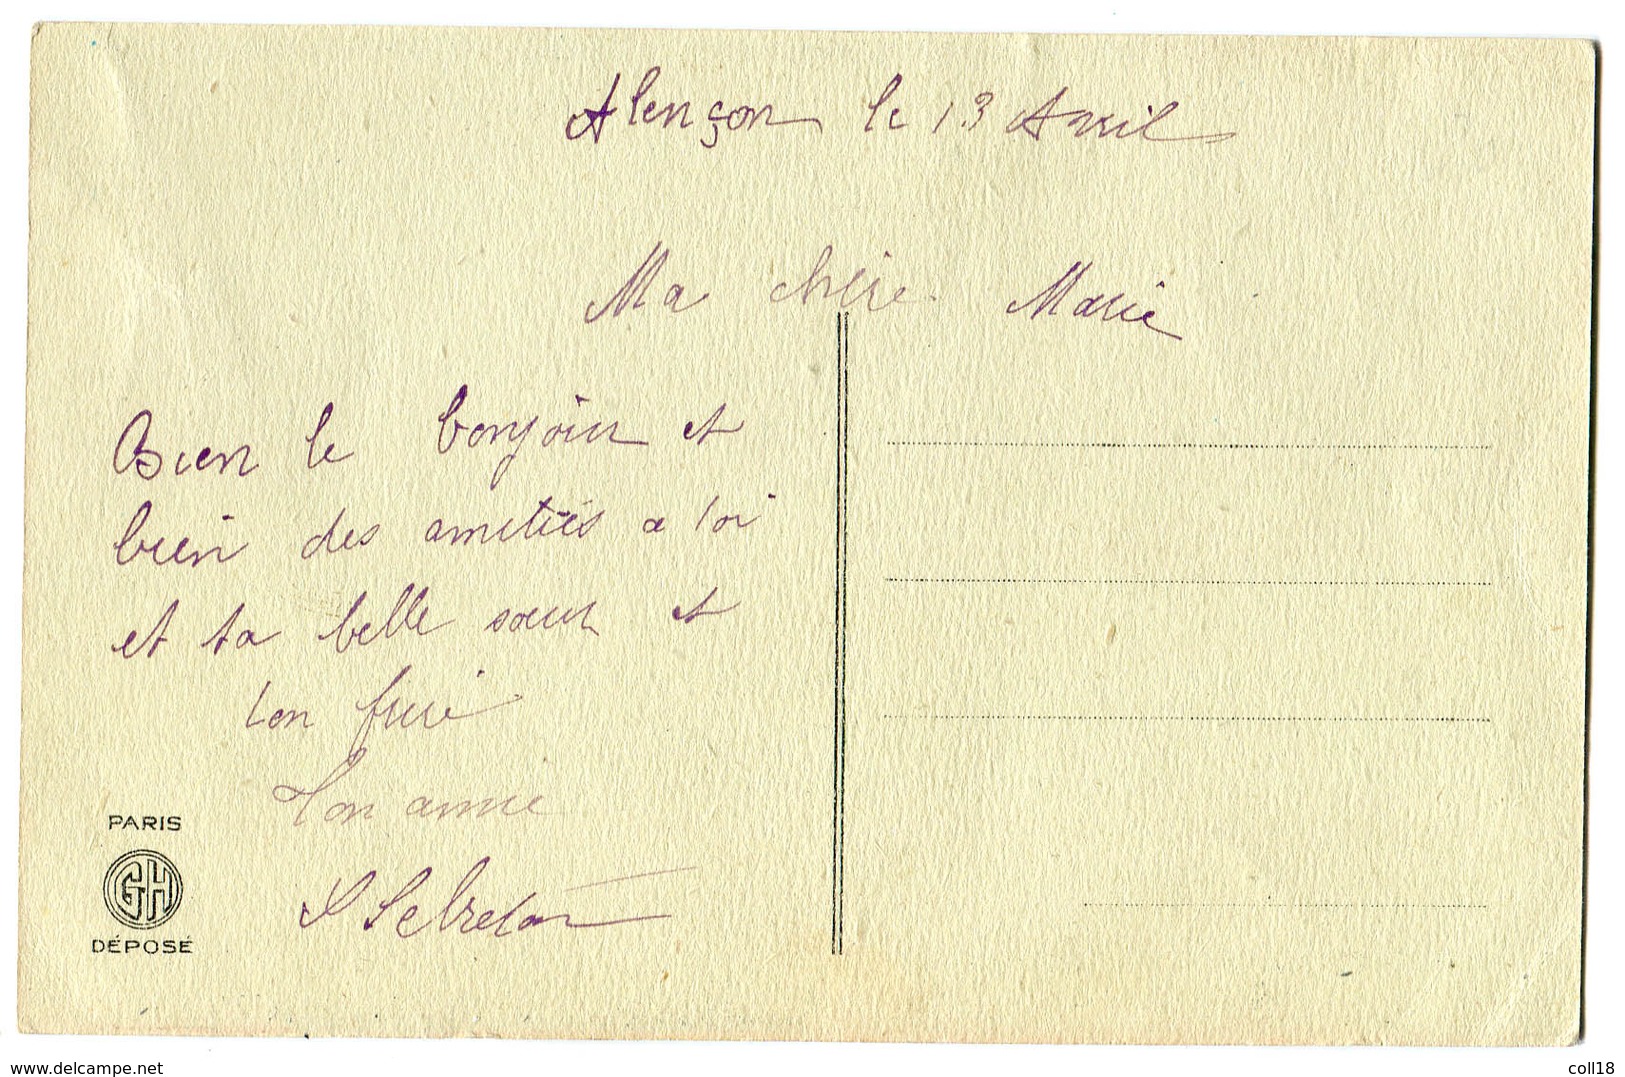 Alençon le 13 Avril
Ma chère Marie
Bien le bonjour et
bien des amitiés a toi
et ta belle sœur et
ton frère
Ton amie
Lebreton
PARIS
GH
DÉPOSÉ
www.delcampe.net
coll18